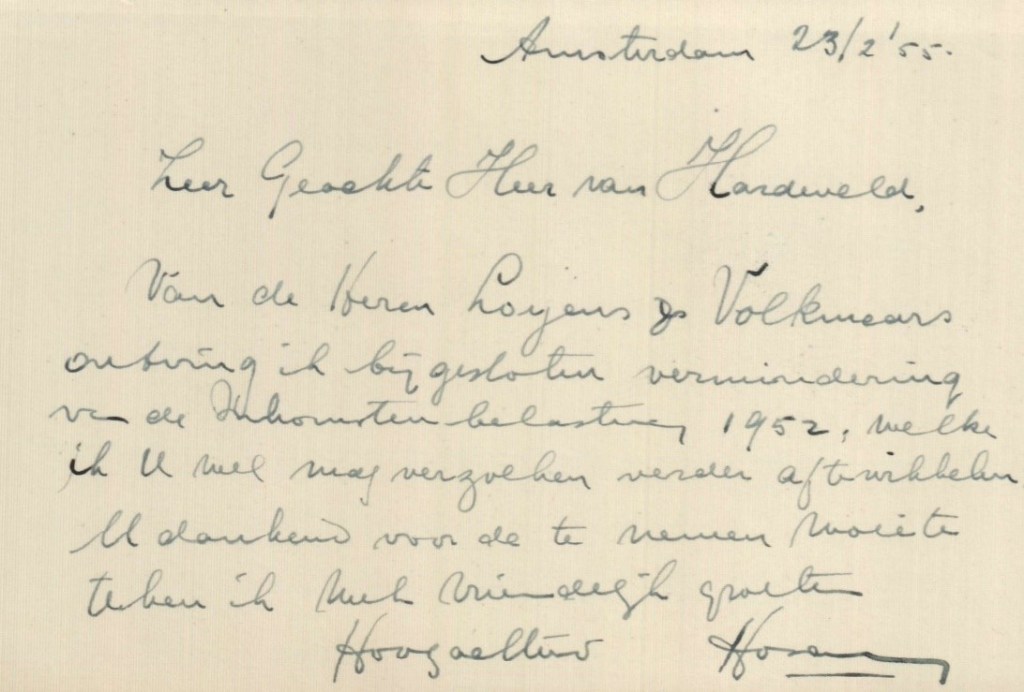 Amsterdam 23/2 '55.
Zeer Geachte Heer van Hardeveld,
Van de Heren Loyens & Volkmaars
ontving ik bijgesloten vermindering
van de Inkomstenbelasting 1952, welke
ik U wel mag verzoeken verder af te wikkelen
U dankend voor de te nemen moeite
teken ik met vriendelijk groeten
Hoogachtend